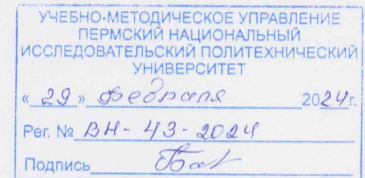 УЧЕБНО-МЕТОДИЧЕСКОЕ УПРАВЛЕНИЕ
ПЕРМСКИЙ НАЦИОНАЛЬНЫЙ
ИССЛЕДОВАТЕЛЬСКИЙ ПОЛИТЕХНИЧЕСКИЙ
УНИВЕРСИТЕТ
« 29 » февраля 2024 г.
Рег. № ВН-43-2024
Подпись